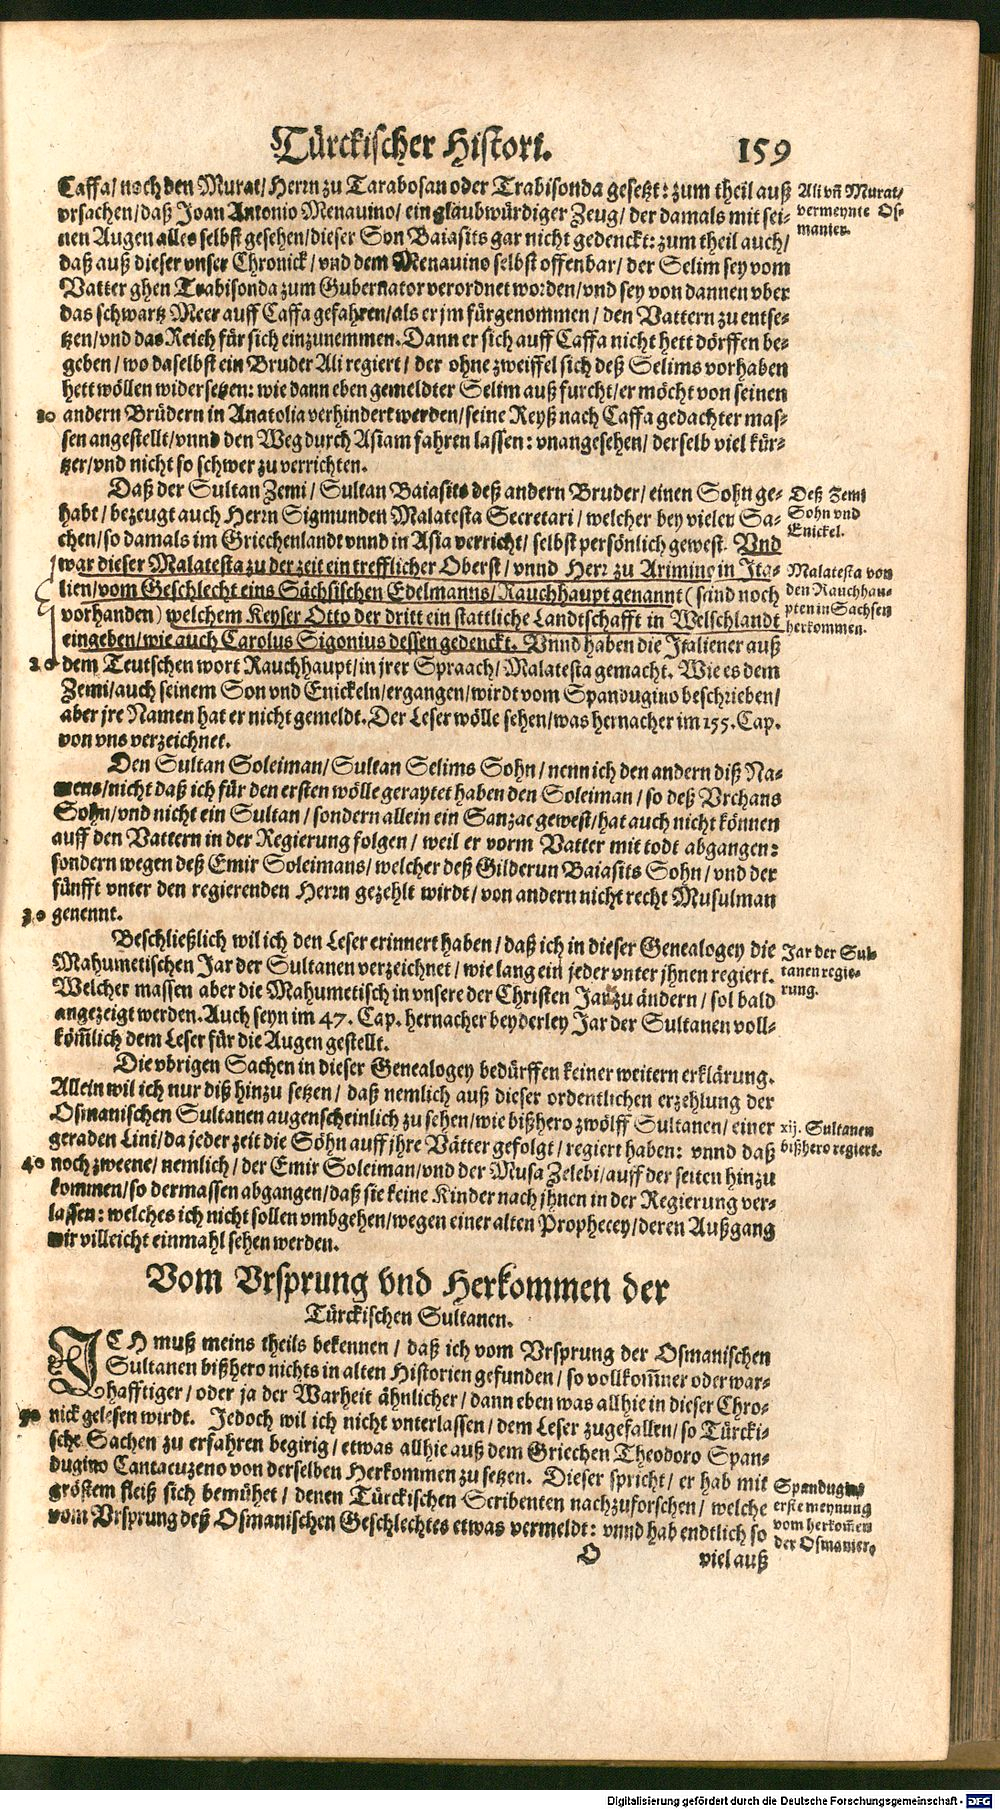 Türckischer Histori. 159
Caffa/ noch den Murat/ Herrn zu Tarabosan oder Trabisonda gesetzt: zum theil auß
vrsachen/ daß Joan Antonio Menauino/ ein glaubwürdiger Zeug/ der damals mit sei-
nen Augen alles selbst gesehen/ dieser Son Baiasits gar nicht gedenckt: zum theil auch/
daß auß dieser vnser Chronick/ vnd dem Menauino selbst offenbar/ der Selim sey vom
Vatter ghen Trabisonda zum Gubernator verordnet worden/ vnd sey von dannen vber
das schwartz Meer auff Caffa gefahren/ als er jm fürgenommen/ den Vattern zu entse-
tzen/ vnd das Reich für sich einzunemmen. Dann er sich auff Caffa nicht hett dörffen be-
geben/ wo daselbst ein Bruder Ali regiert/ der ohne zweiffel sich deß Selims vorhaben
hett wöllen widersetzen: wie dann eben gemeldter Selim auß furcht/ er möcht von seinen
10 andern Brüdern in Anatolia verhindert werden/ seine Reyß nach Caffa gedachter mas-
sen angestellt/ vnnd den Weg durch Asiam fahren lassen: vnangesehen/ derselb viel kür-
tzer/ vnd nicht so schwer zu verrichten.
Ali vñ Murat/
vermeynte Os-
manier.
Daß der Sultan Zemi/ Sultan Baiasits deß andern Bruder/ einen Sohn ge-
habt/ bezeugt auch Herrn Sigmunden Malatesta Secretari/ welcher bey vielen Sa-
chen/ so damals im Griechenlandt vnnd in Asia verricht/ selbst persönlich gewest. Vnd
war dieser Malatesta zu der zeit ein trefflicher Oberst/ vnnd Herr zu Arimino in Ita-
lien/ vom Geschlecht eins Sächsischen Edelmanns/ Rauchhaupt genannt (sind noch
vorhanden) welchem Keyser Otto der dritt ein stattliche Landtschafft in Welschlandt
eingeben/ wie auch Carolus Sigonius dessen gedenckt. Vnnd haben die Italiener auß
20 dem Teutschen wort Rauchhaupt/ in jrer Spraach/ Malatesta gemacht. Wie es dem
Zemi/ auch seinem Son vnd Enickeln/ ergangen/ wirdt vom Spandugino beschrieben/
aber jre Namen hat er nicht gemeldt. Der Leser wölle sehen/ was hernacher im 155. Cap.
von vns verzeichnet.
Deß Zemi
Sohn vnd
Enickel.
Malatesta von
den Rauchhau-
pten in Sachsen
herkommen.
Den Sultan Soleiman/ Sultan Selims Sohn/ nenn ich den andern diß Na-
mens/ nicht daß ich für den ersten wölle geraytet haben den Soleiman/ so deß Vrchans
Sohn/ vnd nicht ein Sultan/ sondern allein ein Sanzac gewest/ hat auch nicht können
auff den Vattern in der Regierung folgen/ weil er vorm Vatter mit todt abgangen:
sondern wegen deß Emir Soleimans/ welcher deß Gilderun Baiasits Sohn/ vnd der
fünfft vnter den regierenden Herrn gezehlt wirdt/ von andern nicht recht Musulman
30 genennt.
Beschließlich wil ich den Leser erinnert haben/ daß ich in dieser Genealogey die
Mahumetischen Jar der Sultanen verzeichnet/ wie lang ein jeder vnter jhnen regiert.
Welcher massen aber die Mahumetisch in vnsere der Christen Jar zu ändern/ sol bald
angezeigt werden. Auch seyn im 47. Cap. hernacher beyderley Jar der Sultanen voll-
köm̃lich dem Leser für die Augen gestellt.
Jar der Sul-
tanen regie-
rung.
Die vbrigen Sachen in dieser Genealogey bedürffen keiner weitern erklärung.
Allein wil ich nur diß hinzu setzen/ daß nemlich auß dieser ordentlichen erzehlung der
Osmanischen Sultanen augenscheinlich zu sehen/ wie bißhero zwölff Sultanen/ einer
geraden Lini/ da jeder zeit die Söhn auff jhre Vätter gefolgt/ regiert haben: vnnd daß
40 noch zweene/ nemlich/ der Emir Soleiman/ vnd der Musa Zelebi/ auff der seiten hinzu
kommen/ so dermassen abgangen/ daß sie keine Kinder nach jhnen in der Regierung ver-
lassen: welches ich nicht sollen vmbgehen/ wegen einer alten Prophecey/ deren Außgang
wir villeicht einmahl sehen werden.
xij. Sultanen
bißhero regiert.
Vom Vrsprung vnd Herkommen der
Türckischen Sultanen.
ICH muß meins theils bekennen/ daß ich vom Vrsprung der Osmanischen
Sultanen bißhero nichts in alten Historien gefunden/ so vollkom̃ner oder war-
hafftiger/ oder ja der Warheit ähnlicher/ dann eben was allhie in dieser Chro-
50 nick gelesen wirdt. Jedoch wil ich nicht vnterlassen/ dem Leser zugefallen/ so Türcki-
sche Sachen zu erfahren begirig/ etwas allhie auß dem Griechen Theodoro Span-
dugino Cantacuzeno von derselben Herkommen zu setzen. Dieser spricht/ er hab mit
gröstem fleiß sich bemühet/ denen Türckischen Scribenten nachzuforschen/ welche
vom Vrsprung deß Osmanischen Geschlechtes etwas vermeldt: vnnd hab endtlich so
Spandugini
erste meynung
vom herkom̃en
der Osmanier.
O viel auß
Digitalisierung gefördert durch die Deutsche Forschungsgemeinschaft - DFG